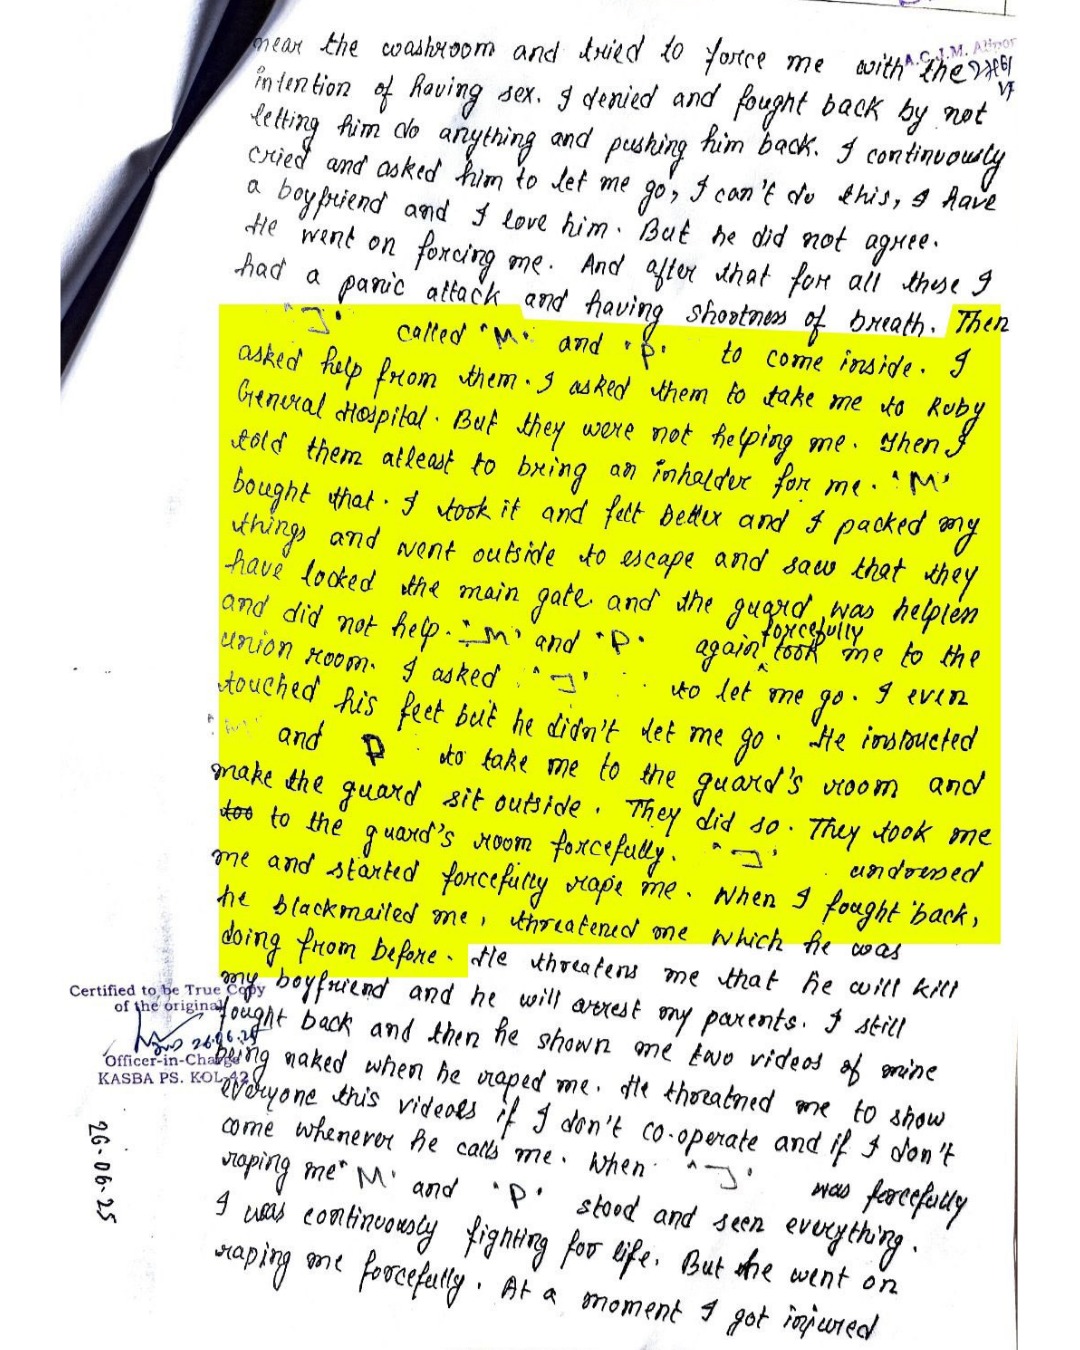 A.C.J.M. Alipor
near the washroom and tried to force me with the
intention of having sex. I denied and fought back by not
letting him do anything and pushing him back. I continuously
cried and asked him to let me go, I can't do this, I have
a boyfriend and I love him. But he did not agree.
He went on forcing me. And after that for all these I
had a panic attack and having shortness of breath. Then
"J" called "M" and "P" to come inside. I
asked help from them. I asked them to take me to Ruby
General Hospital. But they were not helping me. Then I
told them atleast to bring an inhalder for me. "M"
bought that. I took it and felt better and I packed my
things and went outside to escape and saw that they
have locked the main gate and the guard was helpless
and did not help. "M" and "P" again forcefully took me to the
union room. I asked "J" to let me go. I even
touched his feet but he didn't let me go. He instructed
"M" and P to take me to the guard's room and
make the guard sit outside. They did so. They took me
too to the guard's room forcefully. "J" undressed
me and started forcefully rape me. When I fought back,
he blackmailed me, threatened me which he was
doing from before. He threatens me that he will kill
my boyfriend and he will arrest my parents. I still
fought back and then he shown me two videos of mine
being naked when he raped me. He threatned me to show
everyone this videoes if I don't co-operate and if I don't
come whenever he calls me. When "J" was forcefully
raping me "M" and "P" stood and seen everything.
I was continuously fighting for life. But he went on
raping me forcefully. At a moment I got injured
Certified to be True Copy
of the original
26.06.25
Officer-in-Charge
KASBA PS. KOL-42
26.06.25